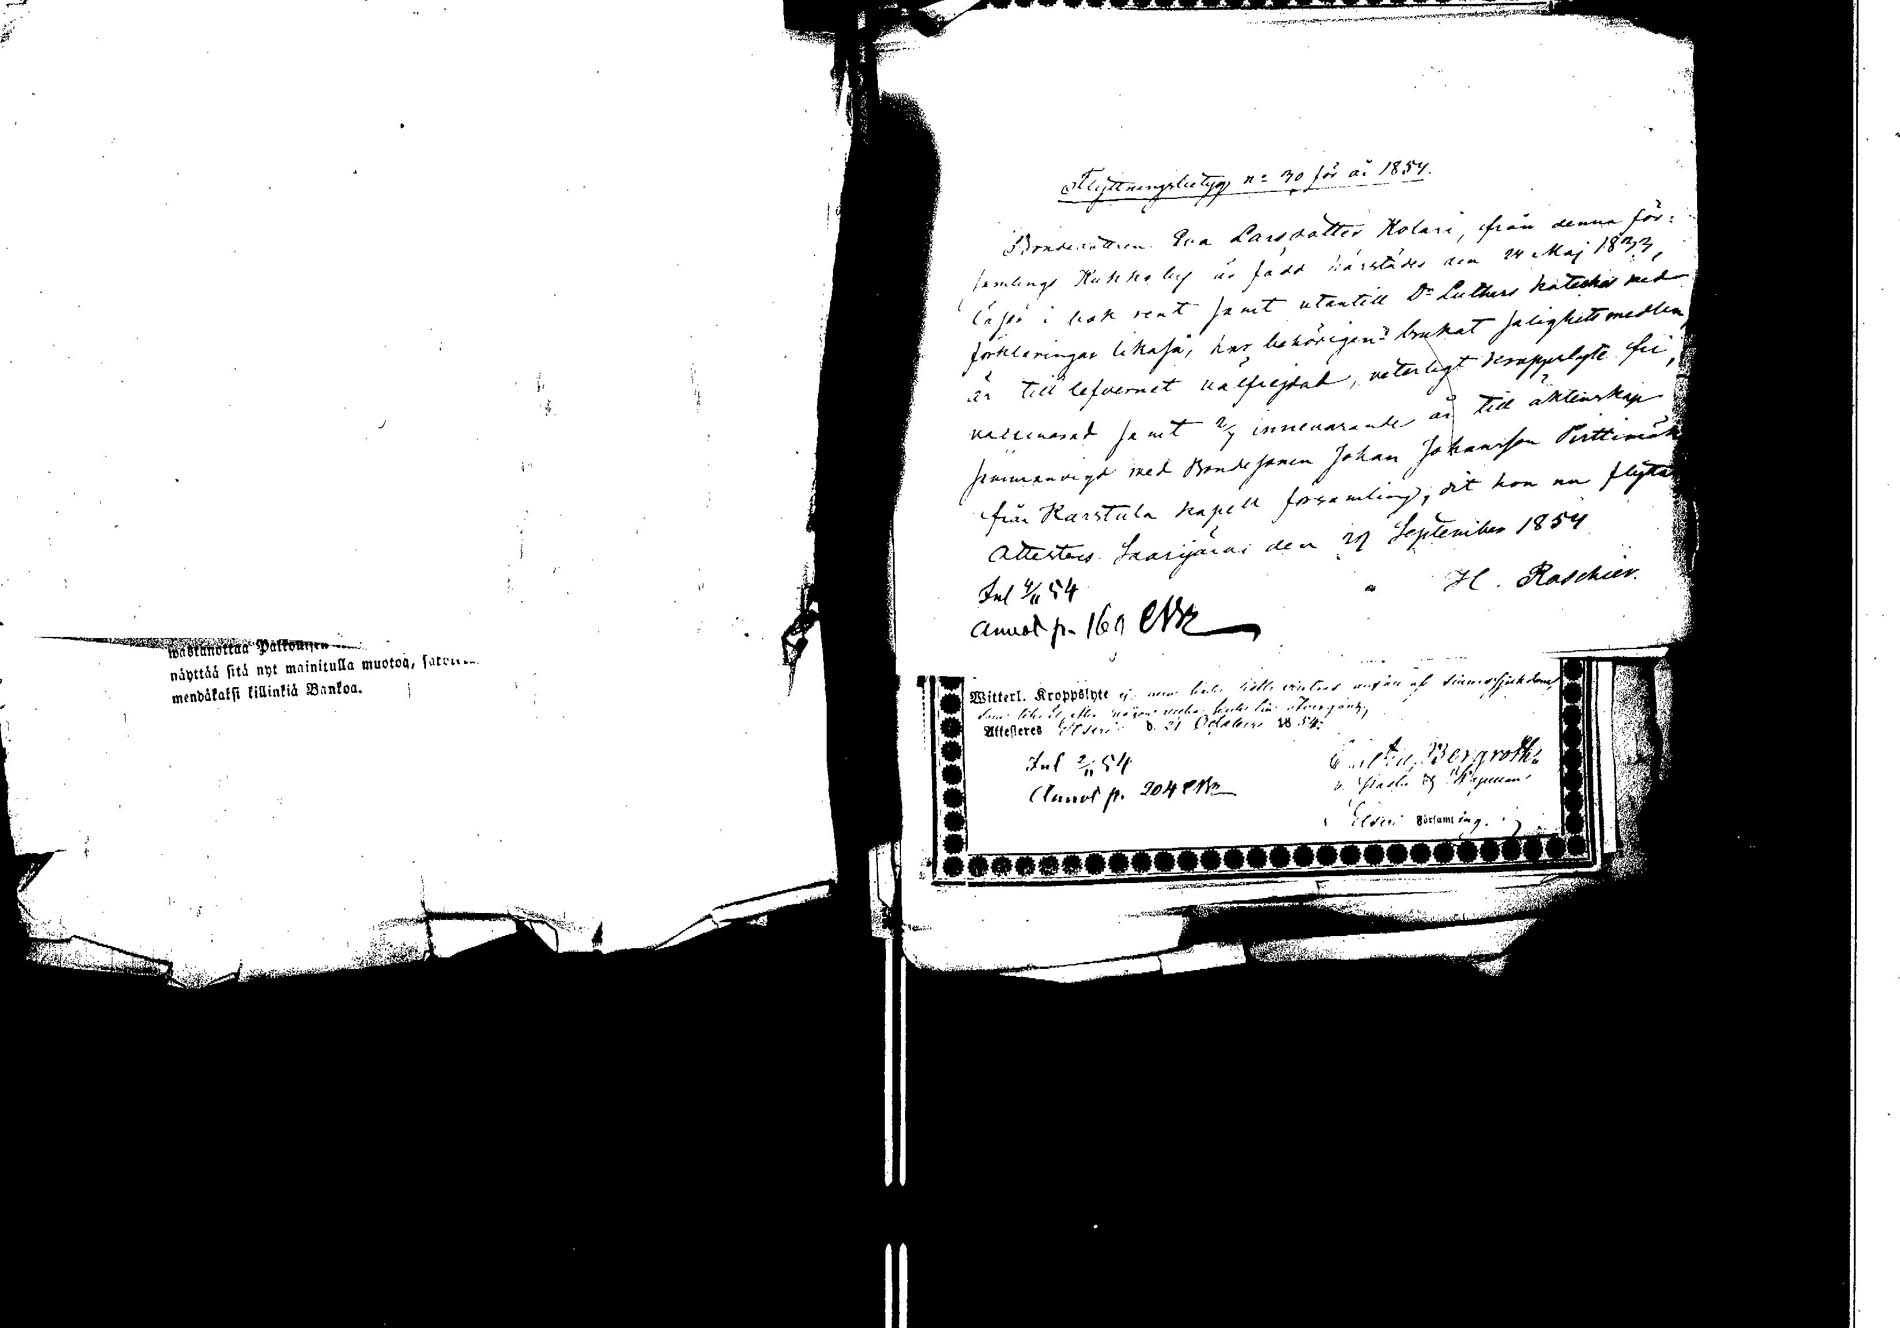 wastanottaa Palkollisen
näyttää sitä nyt mainitulla muotoa,
mendäkaksi killinkiä Bankoa.
Flyttningsbetyg n:o 30 för år 1854.
Bondedottren Eva Larsdotter Kolari, från denna för=
samlings Kukko by är född härstädes den 24 Maj 1833,
läser i bok rent samt utantill Dr Luthers kateches med
förklaringar likaså, har behörigen brukat salighetsmedlen,
är till lefvernet välfrejdad, veterligt kroppslyte fri,
vaccinerad samt 2/7 innevarande år till äktenskap
sammanvigd med Bondesonen Johan Johansson Pirttimäki
från Karstula kapell församling, dit hon nu flyttar
Attesteras Saarijärvi den 27 September 1854
H. Roschier.
Inl 4/11 54
Annot p. 169
Witterl. Kroppslyte
Attesteras Etseri d. 21 October 1854.
Inl 2/11 54
Annot p. 204
Bergroth
Etseri Församling.